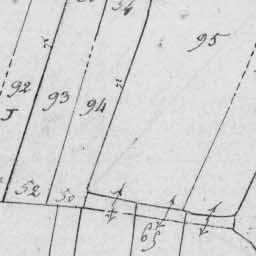 95
92
93
94
J
52
50
65